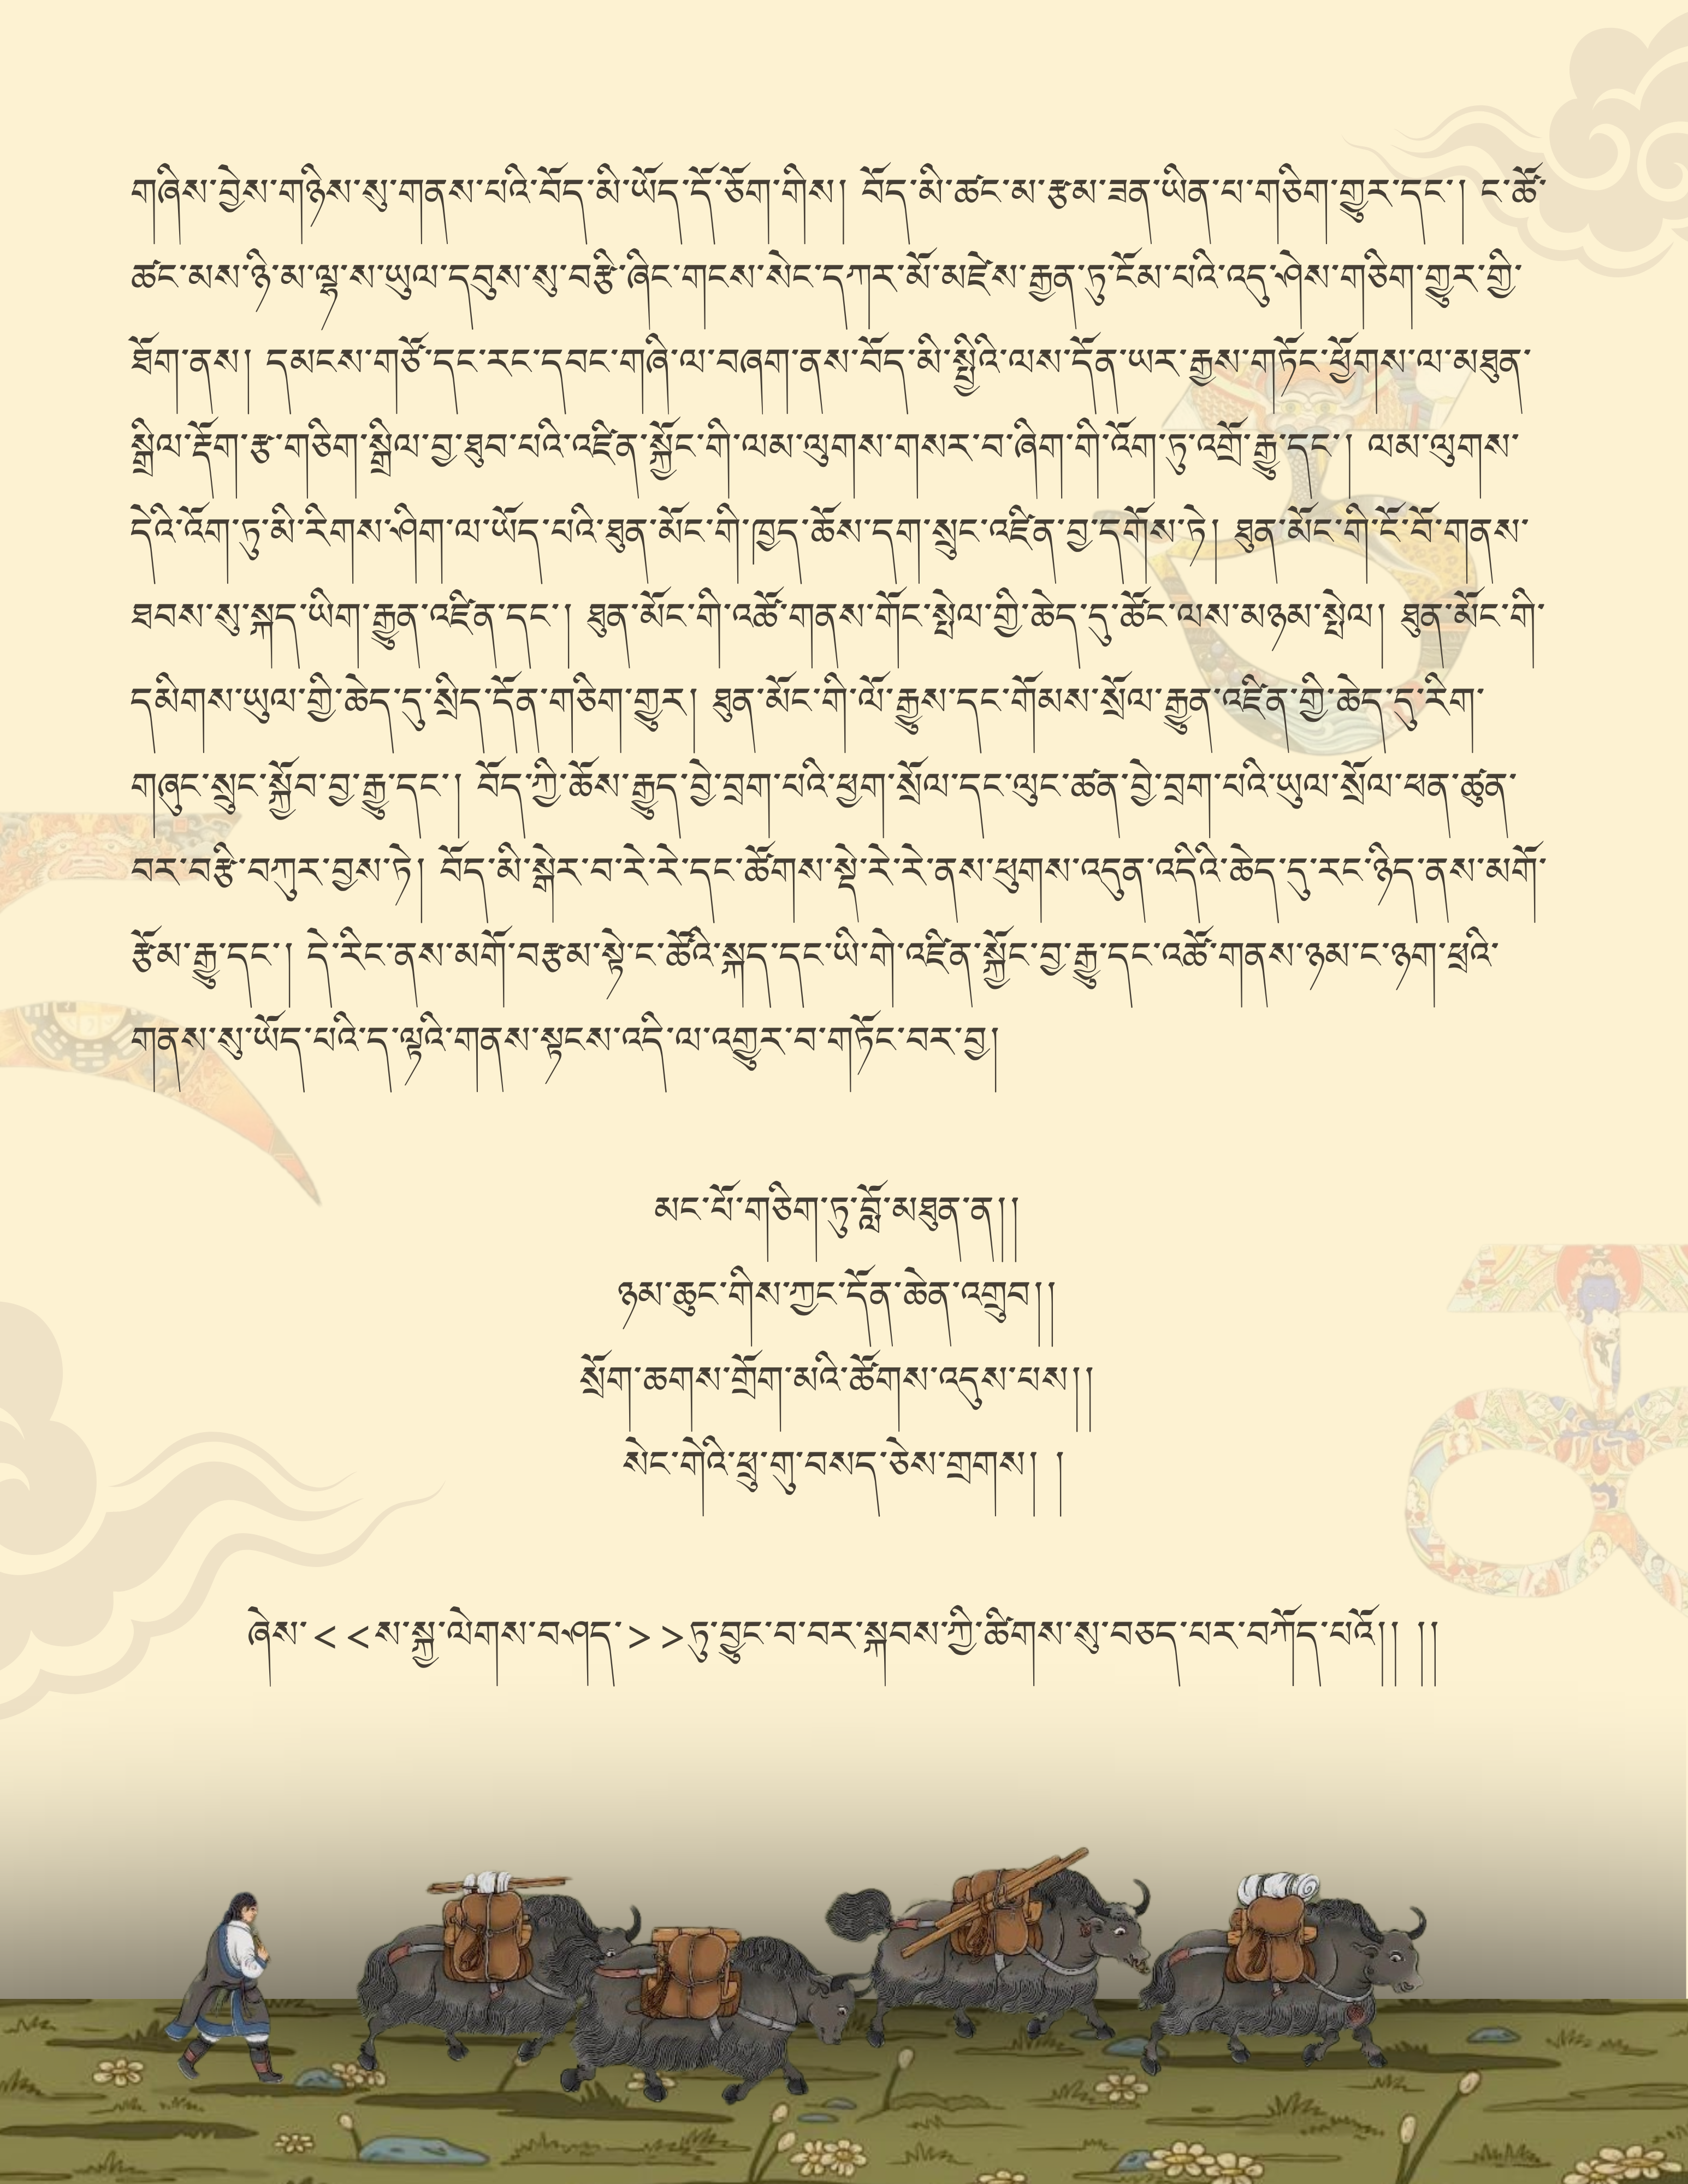 གཞིས་བྱེས་གཉིས་སུ་གནས་པའི་བོད་མི་ཡོད་དོ་ཅོག་གིས། བོད་མི་ཚང་མ་རྩམ་ཟན་ཡིན་པ་གཅིག་གྱུར་དང་། ང་ཚོ་
ཚང་མས་ཉི་མ་ལྷ་ས་ཡུལ་དབུས་སུ་བརྩི་ཞིང་གངས་སེང་དཀར་མོ་མཛེས་རྒྱན་ཏུ་ངོམ་པའི་འདུ་ཤེས་གཅིག་གྱུར་གྱི་
ཐོག་ནས། དམངས་གཙོ་དང་རང་དབང་གཞི་ལ་བཞག་ནས་བོད་མི་སྤྱིའི་ལས་དོན་ཡར་རྒྱས་གཏོང་ཕྱོགས་ལ་མཐུན་
སྒྲིལ་རྡོག་རྩ་གཅིག་སྒྲིལ་བྱ་ཐུབ་པའི་འཛིན་སྐྱོང་གི་ལམ་ལུགས་གསར་བ་ཞིག་གི་འོག་ཏུ་འགྲོ་རྒྱུ་དང་། ལམ་ལུགས་
དེའི་འོག་ཏུ་མི་རིགས་ཤིག་ལ་ཡོད་པའི་ཐུན་མོང་གི་ཁྱད་ཆོས་དག་སྲུང་འཛིན་བྱ་དགོས་ཏེ། ཐུན་མོང་གི་ངོ་བོ་གནས་
ཐབས་སུ་སྐད་ཡིག་རྒྱུན་འཛིན་དང་། ཐུན་མོང་གི་འཚོ་གནས་གོང་སྤེལ་གྱི་ཆེད་དུ་ཚོང་ལས་མཉམ་སྤེལ། ཐུན་མོང་གི་
དམིགས་ཡུལ་གྱི་ཆེད་དུ་སྲིད་དོན་གཅིག་གྱུར། ཐུན་མོང་གི་ལོ་རྒྱུས་དང་གོམས་སྲོལ་རྒྱུན་འཛིན་གྱི་ཆེད་དུ་རིག་
གཞུང་སྲུང་སྐྱོབ་བྱ་རྒྱུ་དང་། བོད་ཀྱི་ཆོས་རྒྱུད་བྱེ་བྲག་པའི་ཕྱག་སྲོལ་དང་ལུང་ཚན་བྱེ་བྲག་པའི་ཡུལ་སྲོལ་ཕན་ཚུན་
བར་བརྩི་བཀུར་བྱས་ཏེ། བོད་མི་སྒེར་བ་རེ་རེ་དང་ཚོགས་སྡེ་རེ་རེ་ནས་ཕུགས་འདུན་འདིའི་ཆེད་དུ་རང་ཉིད་ནས་མགོ་
རྩོམ་རྒྱུ་དང་། དེ་རིང་ནས་མགོ་བརྩམ་སྟེ་ང་ཚོའི་སྐད་དང་ཡི་གེ་འཛིན་སྐྱོང་བྱ་རྒྱུ་དང་འཚོ་གནས་ཉམ་ང་ཉག་ཕྲའི་
གནས་སུ་ཡོད་པའི་ད་ལྟའི་གནས་སྟངས་འདི་ལ་འགྱུར་བ་གཏོང་བར་བྱ།
མང་པོ་གཅིག་ཏུ་བློ་མཐུན་ན།།
ཉམ་ཆུང་གིས་ཀྱང་དོན་ཆེན་འགྲུབ།།
སྲོག་ཆགས་གྲོག་མའི་ཚོགས་འདུས་པས།།
སེང་གེའི་ཕྲུ་གུ་བསད་ཅེས་གྲགས། །
ཞེས་<<ས་སྐྱ་ལེགས་བཤད་>>ཏུ་བྱུང་བ་བར་སྐབས་ཀྱི་ཚིགས་སུ་བཅད་པར་བཀོད་པའོ།། །།